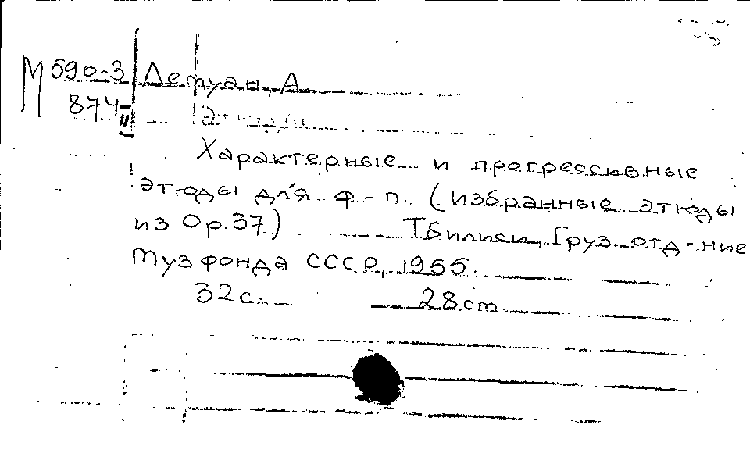 М 590-3 Детуан, А
874-
Этюды
Характерные и прогрессивные
этюды для ф-п. (избранные этюды
из Ор.37) Тбилиси, Груз. отд-ние
Музфонда СССР, 1955.
32с. 28cm